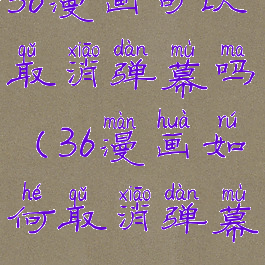 36漫画可以
qǔ xiāo dàn mù ma
取消弹幕吗
màn huà rú
(36漫画如
hé qǔ xiāo dàn mù
何取消弹幕